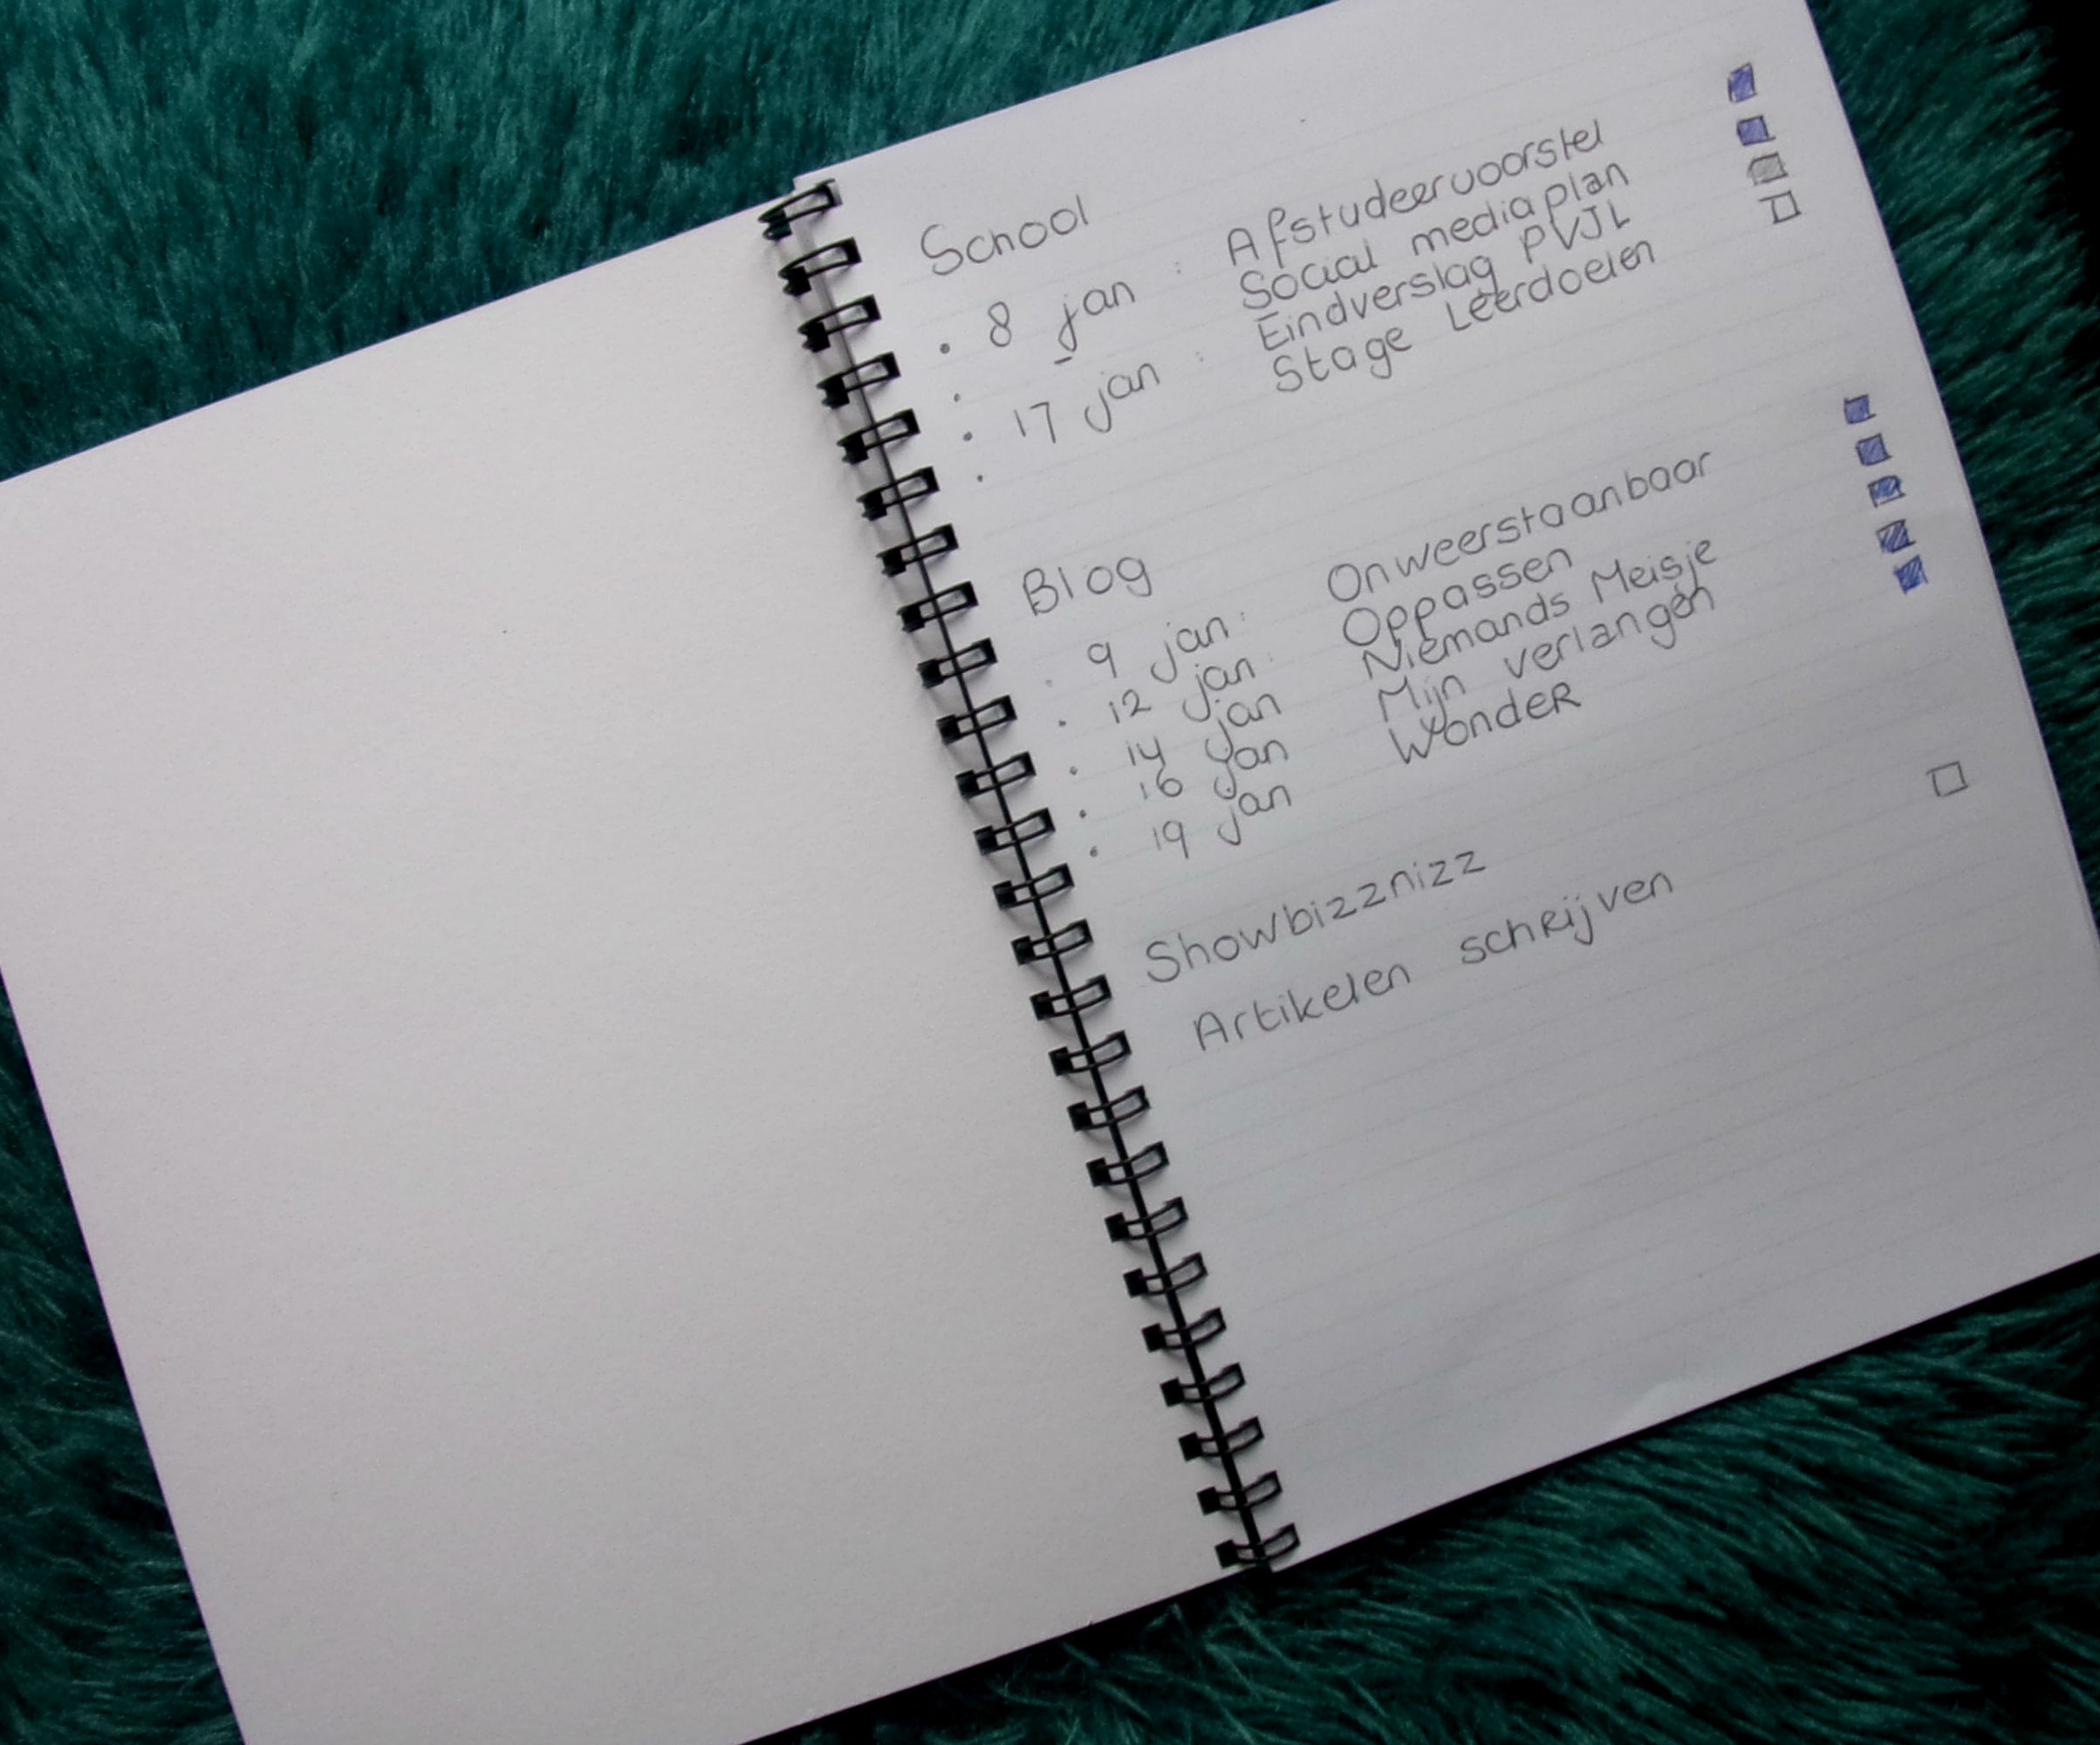 School
• 8 jan : Afstudeervoorstel
• - Social mediaplan
• 17 jan : Eindverslag PVJL
• Stage Leerdoelen
Blog
• 9 jan: Onweerstaanbaar
• 12 jan: Oppassen
• 14 jan Niemands Meisje
• 16 jan Mijn verlangen
• 19 jan Wonder
Showbizznizz
Artikelen schrijven